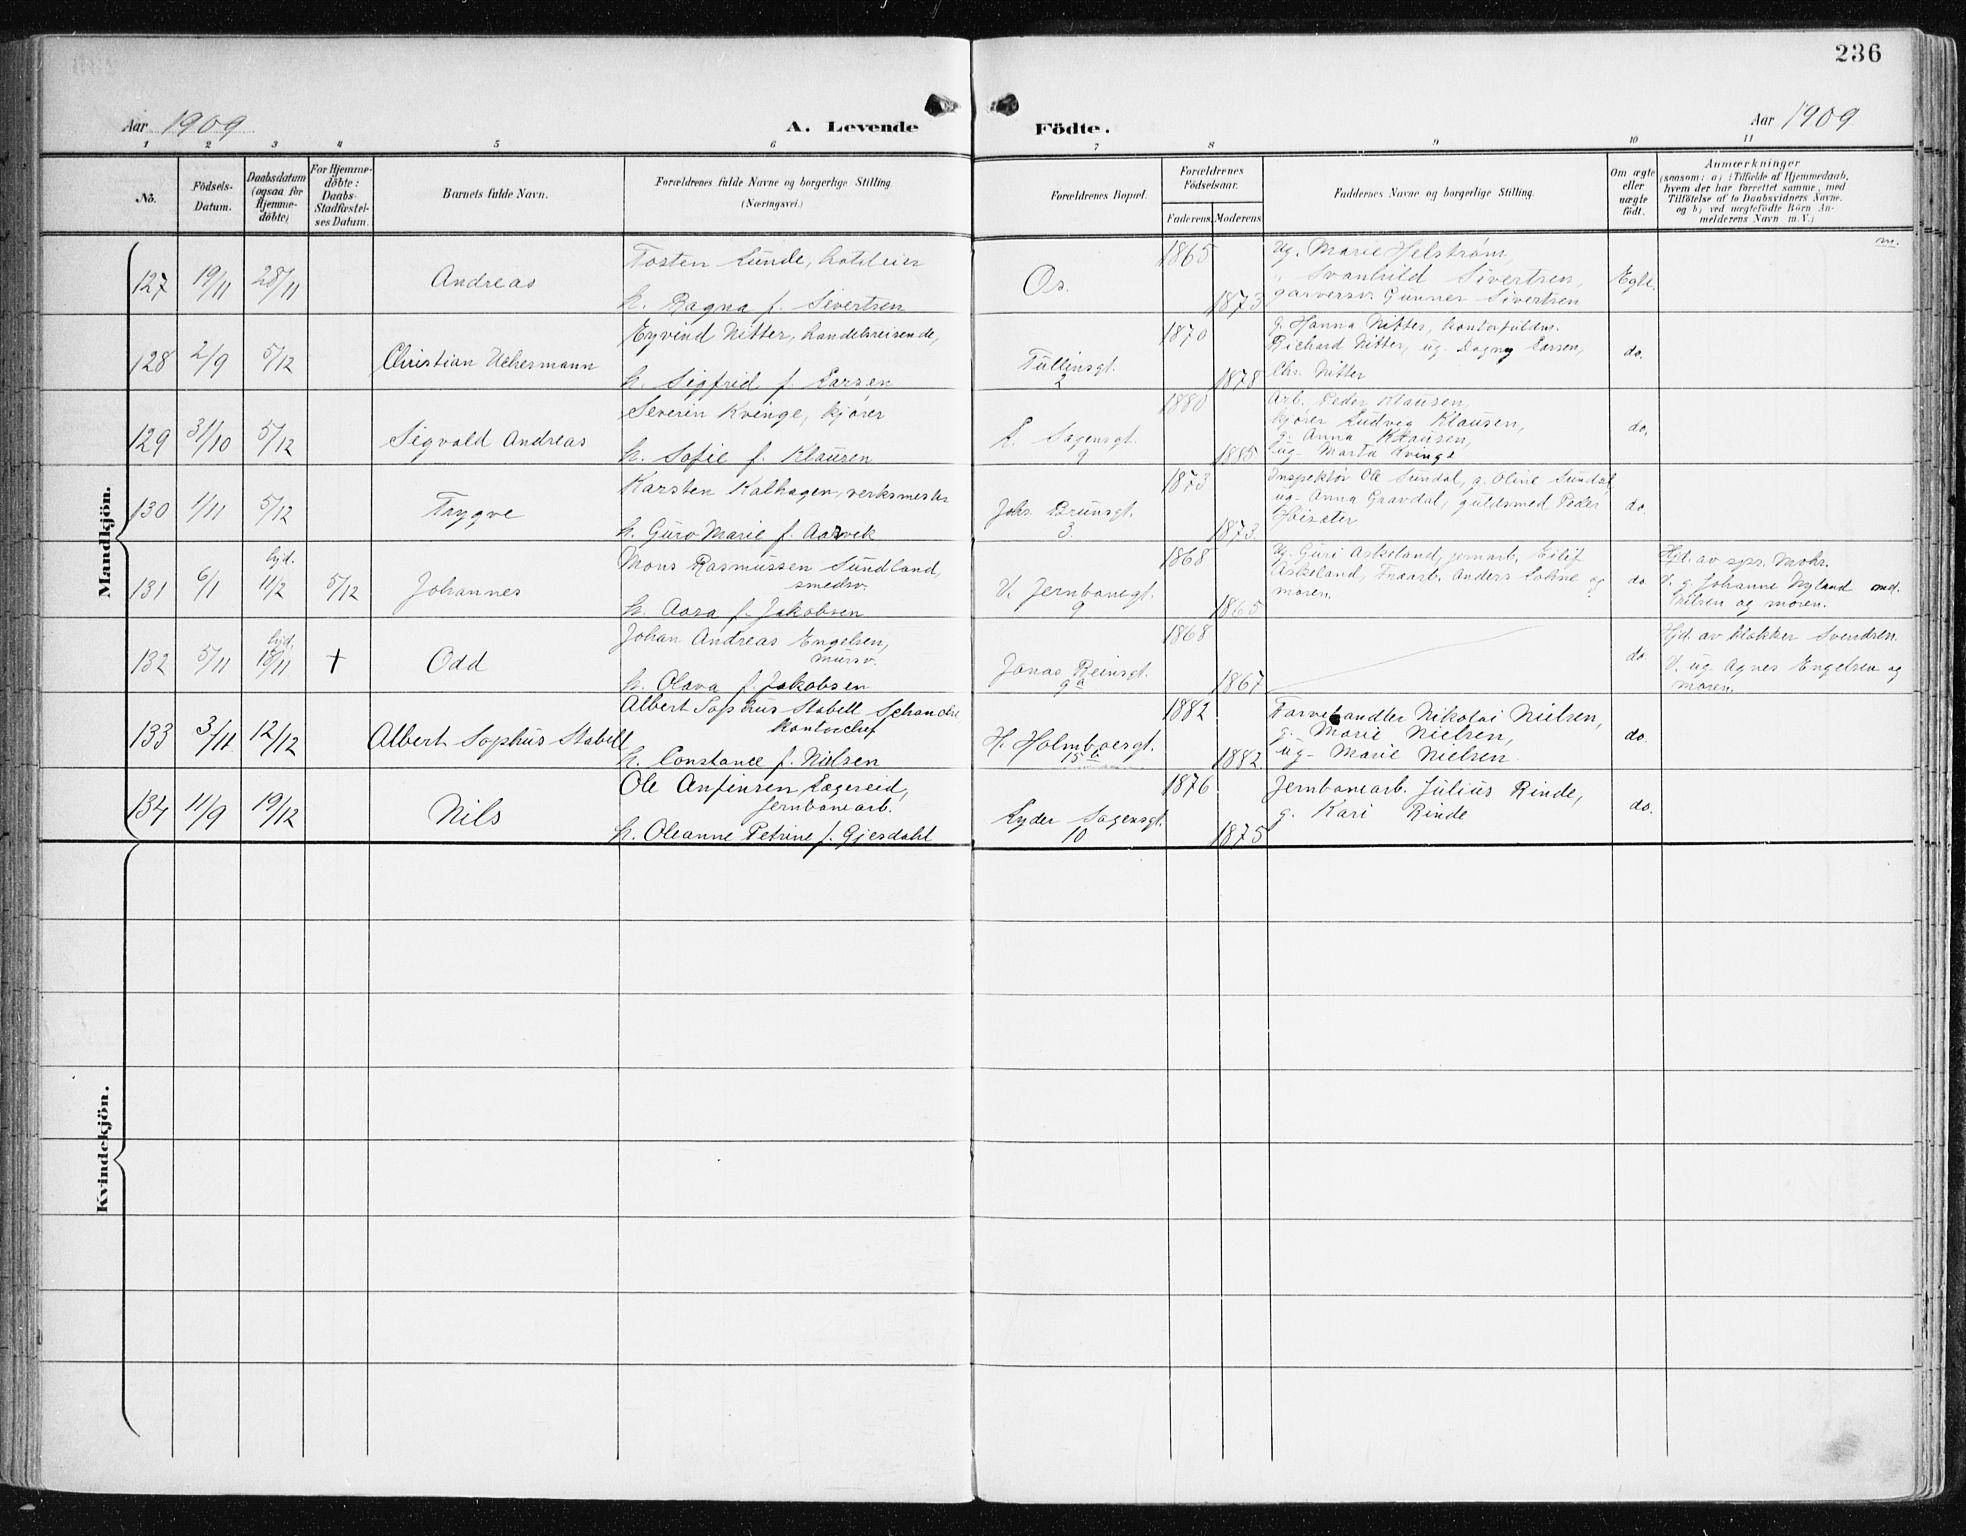 236
Aar 1909
A. Levende Födte.
Aar 1909
1 2 3 4 5 6 7 8 9 10 11
No.
Födsels-
Datum.
Daabsdatum
(ogsaa for
Hjemme-
döbte)
For Hjemme-
döbte:
Daabs-
Stadfæstel-
ses Datum.
Barnets fulde Navn.
Forældrenes fulde Navne og borgerlige Stilling
(Næringsvei.)
Forældrenes Bopæl.
Forældrenes
Födselsaar.
Faderens Moderens
Faddernes Navne og borgerlige Stilling.
Om ægte
eller
uægte
födt.
Anmærkninger
(saasom: a) i Tilfælde af Hjemmedaab,
hvem der har forrettet samme, med
Tilföielse af to Daabsvidners Navne.
og b) ved uægtefödte Börn An-
melderens Navn m. V.)
Mandkjön.
127 19/11 28/11
Andreas
Tosten Lunde, hoteleier
h. Ragna f. Sivertsen
Os.
1865
1873
Ug. Marie Helstrøm,
" Svanhild Sivertsen,
garversv. Gunner Sivertsen
Egte.
m.
128 2/9 5/12
Christian Uchermann
Eyvind Nitter, handelsreisende,
h. Sigfrid f. Larsen
Tullinsgt.
2
1870
1878
g. Hanna Nitter, kontorfuldm.
Richard Nitter, ug. Dagny Larsen,
Chr. Nitter
do.
129 31/10 5/12
Sigvald Andreas
Severin Kvinge, kjører
h. Sofie f. Klausen
L. Sagensgt.
9
1880
1885
Arb. Peder Klausen,
kjører Ludvig Klausen,
g. Anna Klausen,
ug. Marta Kvinge
do.
130 1/11 5/12
Trygve
Karsten Kalhagen, verksmester
h. Guro Marie f. Aarvik
Johs. Brunsgt.
3.
1873
1873.
Inspektør Ole Sundal, g. Oline Sundal,
ug. Anna Gravdal, guldsmed Peder
Høisæter
do.
131 6/1 hjd. 11/2 5/12
Johannes
Mons Rasmussen Sundland,
smedsv.
h. Aasa f. Jakobsen
V. Jernbanegt.
9
1868
1865
Ug. Guri Askeland, jernarb. Eilif
Askeland, Anders Lohne og
moren.
do.
Hjd. av spr. Mohr.
V. g. Johanne Nyland
og moren.
132 5/11 hjd. 18/11 +
Odd
Johan Andreas Engelsen,
mursv.
h. Olava f. Jakobsen
Jonas Reinsgt.
9a
1868
1867
do.
Hjd. av klokker Svendsen.
V. ug. Agnes Engelsen og
moren.
133 3/11 12/12
Albert Sophus Stabell
Albert Sophus Stabell Schanche
kontorchef
h. Constance f. Nielsen
H. Holmboesgt.
15b
1882
1882.
Farvehandler Nikolai Nielsen,
g. Marie Nielsen,
ug. Marie Nielsen.
do.
134 11/9 19/12
Nils
Ole Anfinsen Lægreid,
jernbanearb.
h. Oleanne Petrine f. Gjesdahl
Lyder Sagensgt.
10
1876
1875
Jernbanearb. Julius Rinde,
g. Kari Rinde
do.
Kvindekjön.